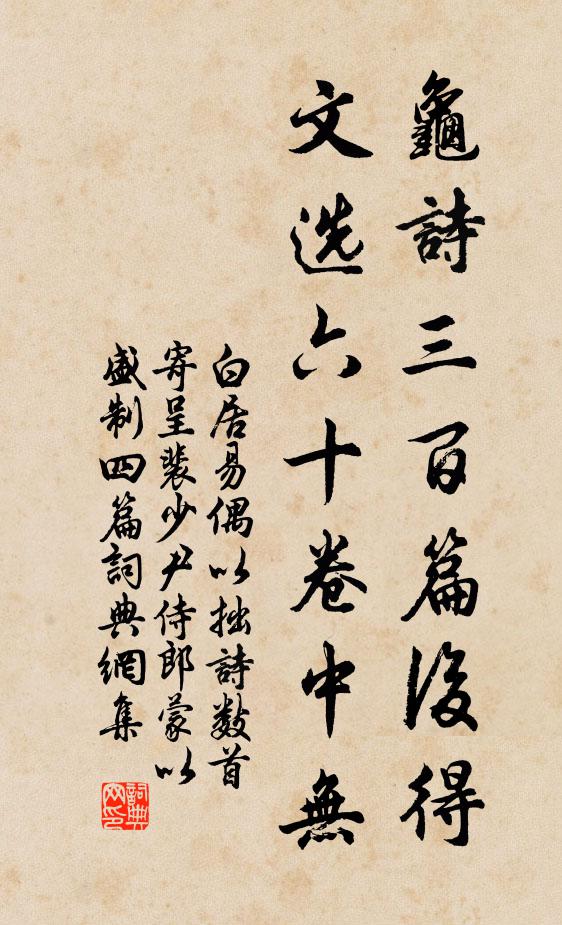 龜詩三百篇後得
文选六十卷中無
白居易偶以拙詩数首
寄呈裴少尹侍郎蒙以
盛制四篇詞典網集
詞典
网印